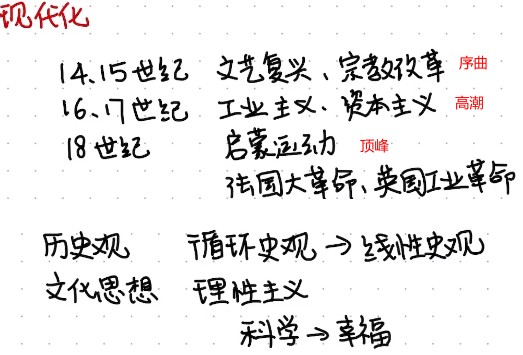 现代化
14、15世纪 文艺复兴、宗教改革 序曲
16、17世纪 工业主义、资本主义 高潮
18世纪 启蒙运动 顶峰
法国大革命、英国工业革命
历史观 循环史观→线性史观
文化思想 理性主义
科学→幸福